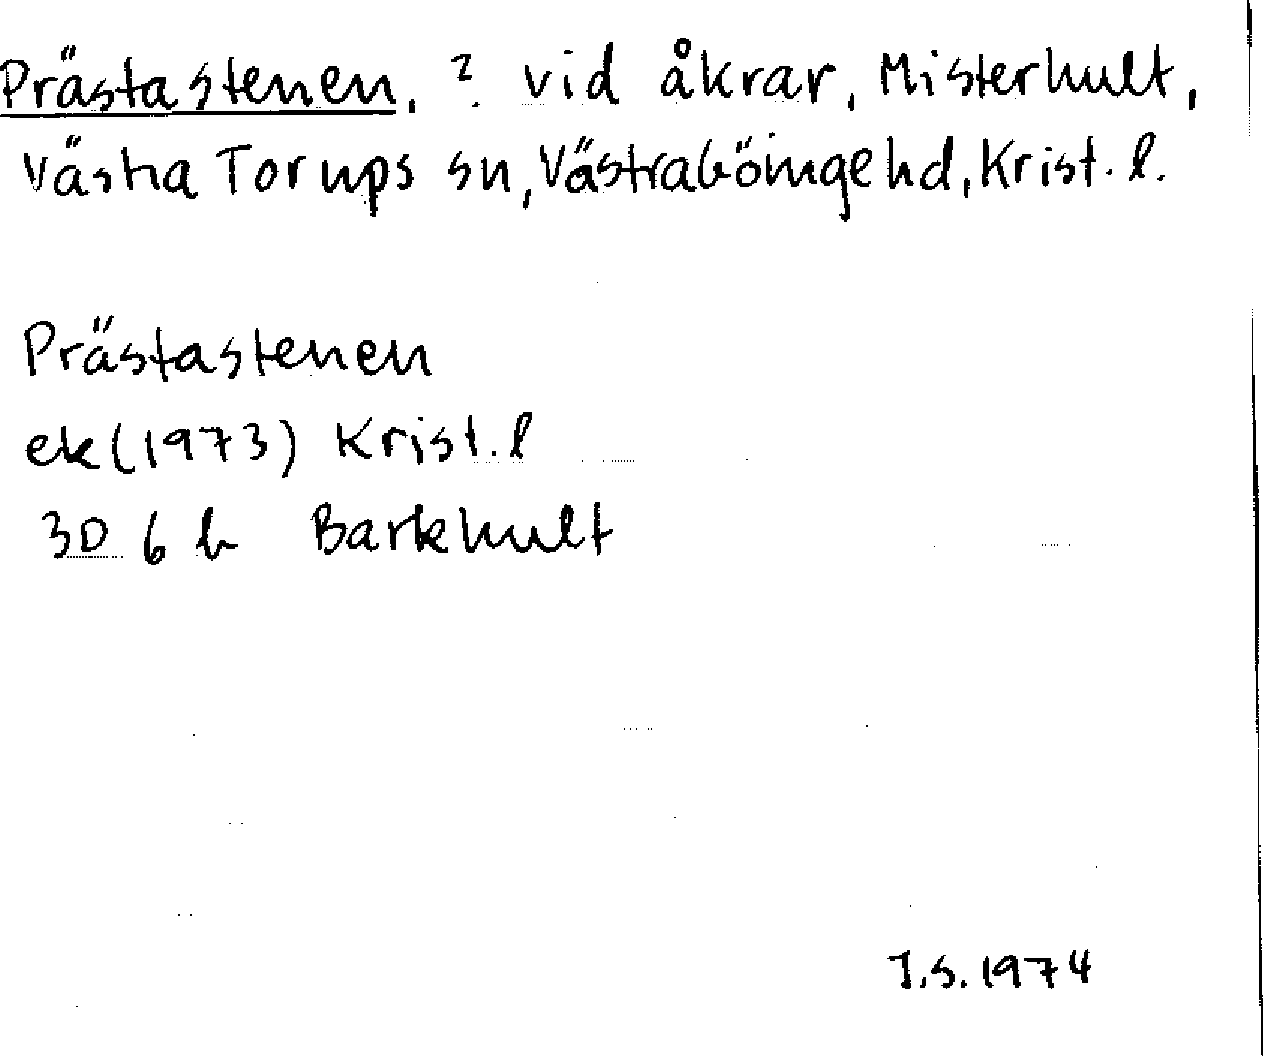 Prästastenen, ? vid åkrar, Misterhult,
Västra Torups sn, Västra Göinge hd, Krist. l.
Prästastenen
ek (1973) Krist. l
3D 6 h Barkhult
I.S. 1974